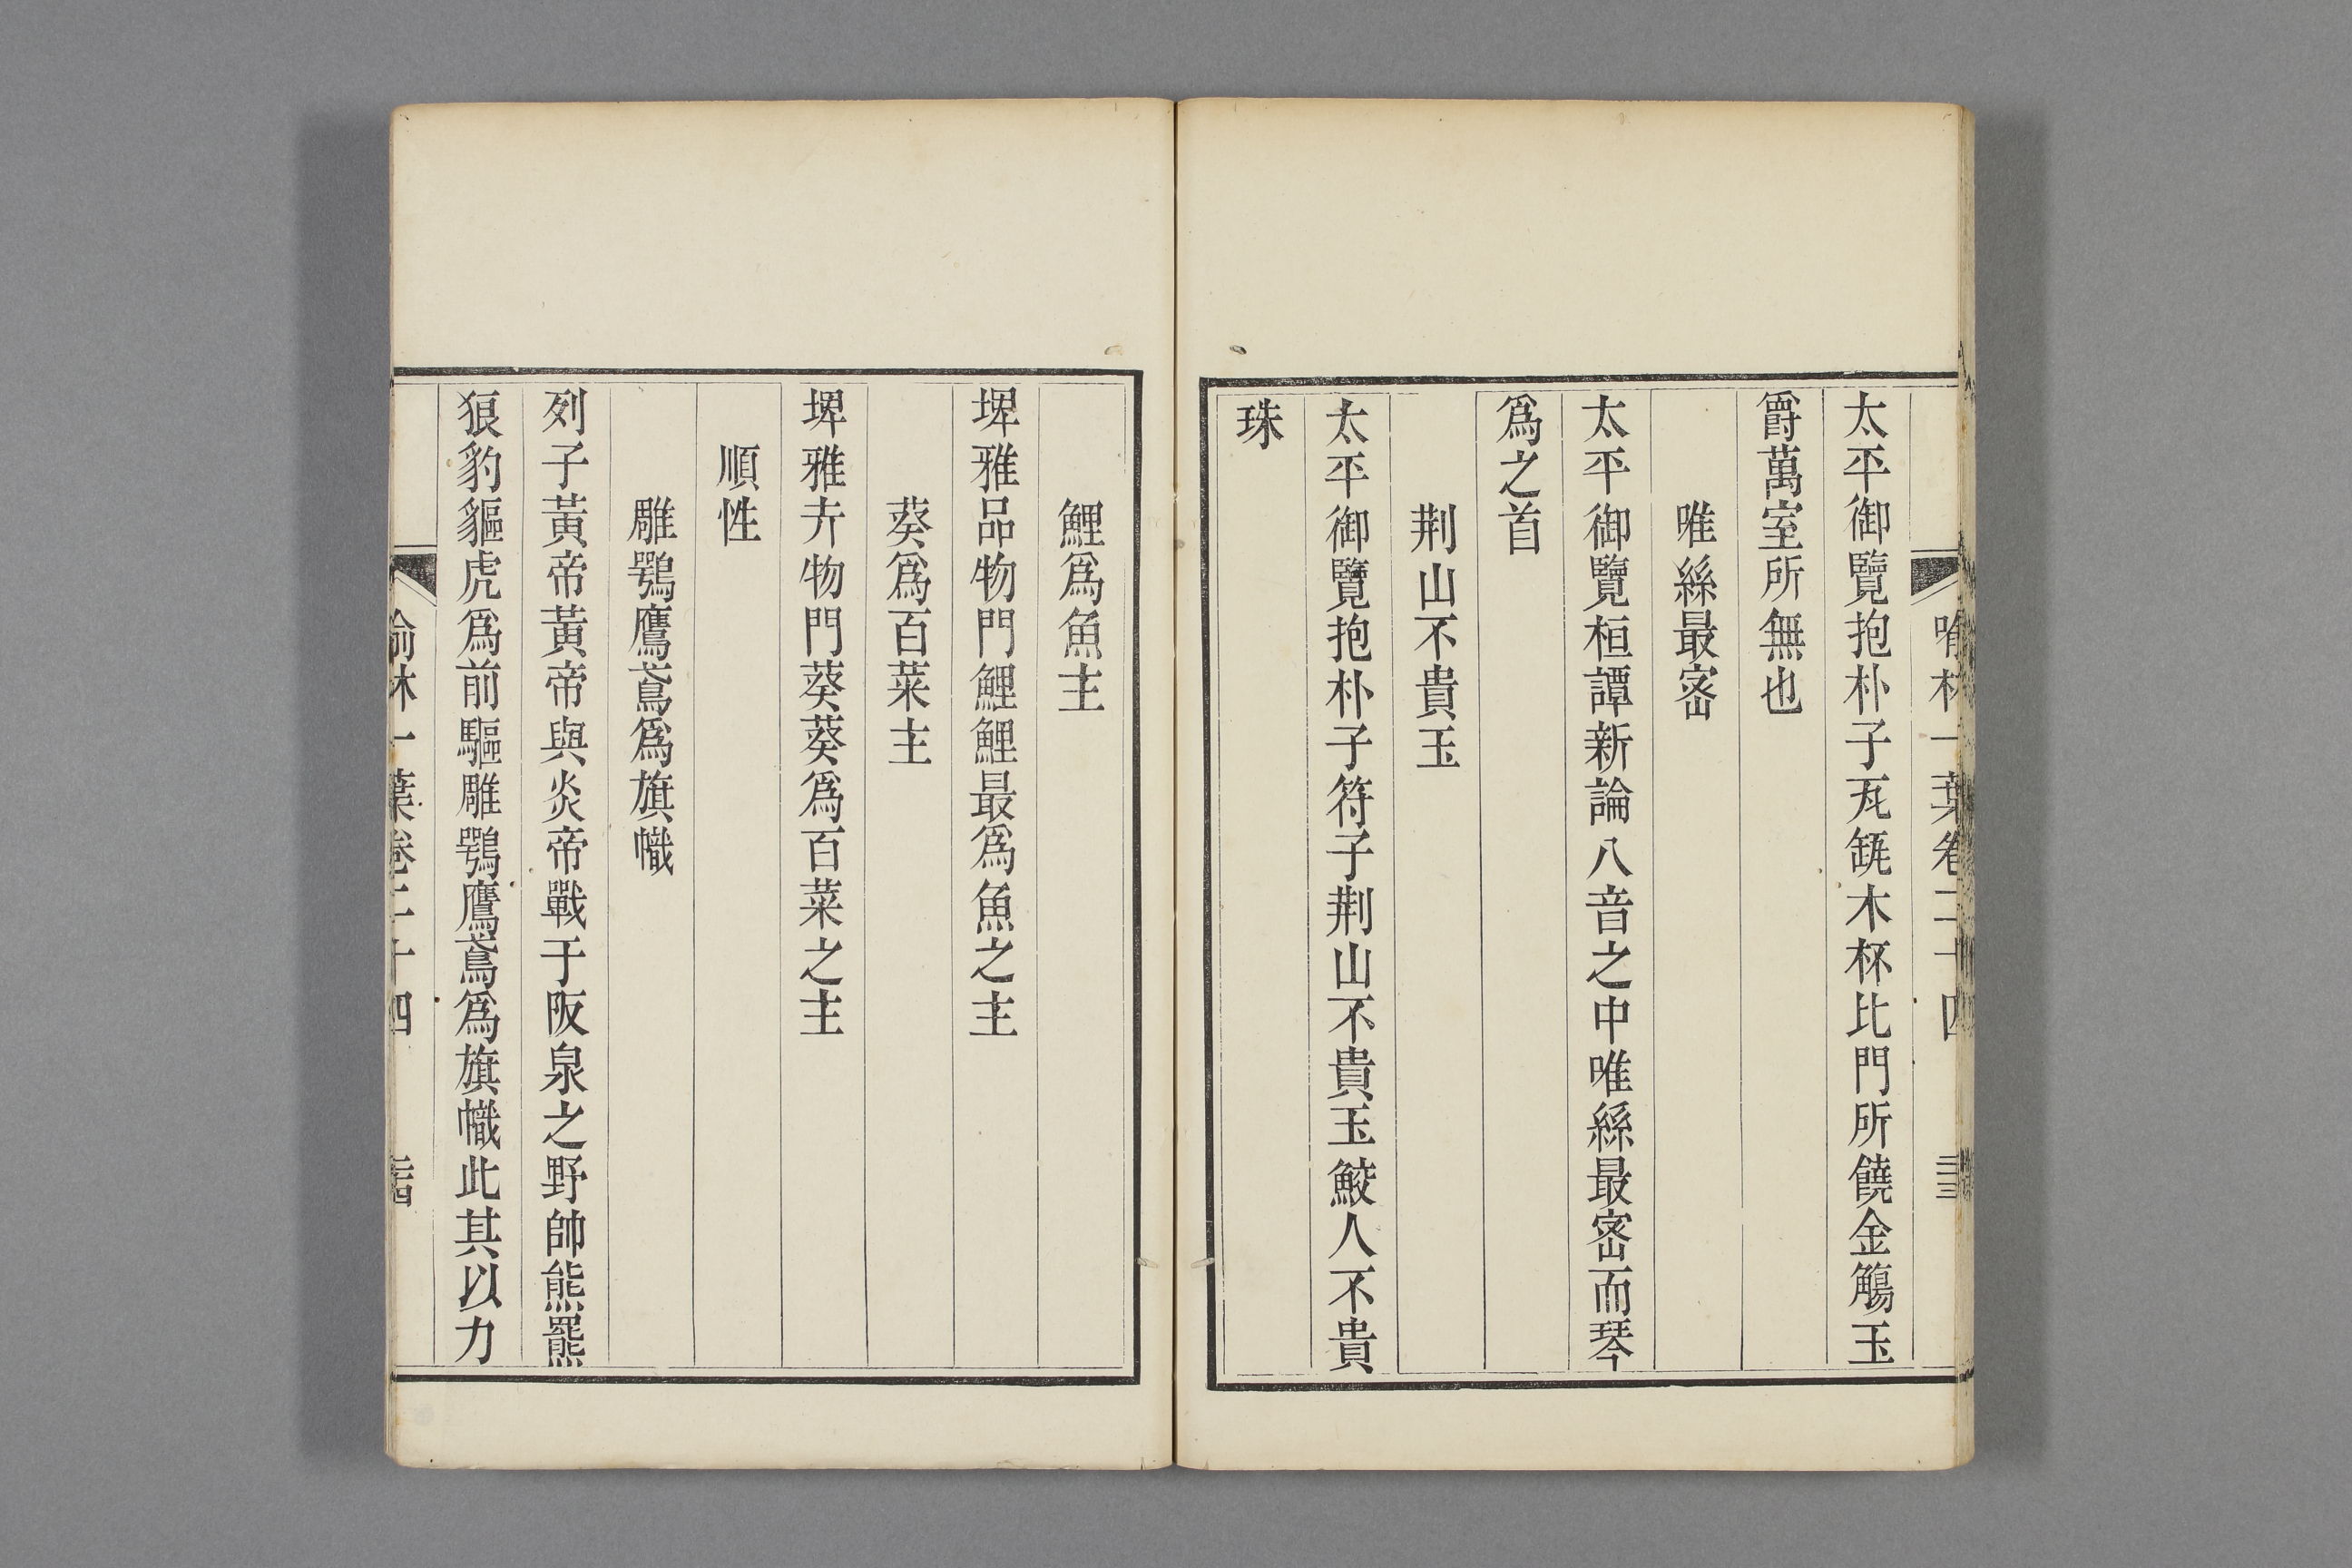 喻林一葉卷二十四
太平御覽抱朴子瓦缻木杯比門所饒金觴玉
爵萬室所無也
唯絲最密
太平御覽桓譚新論八音之中唯絲最密而琴
爲之首
荆山不貴玉
太平御覽抱朴子符子荆山不貴玉鮫人不貴
珠
鯉爲魚主
埤雅品物門鯉鯉最爲魚之主
葵爲百菜主
埤雅卉物門葵葵爲百菜之主
順性
雕鶚鷹鳶爲旗幟
列子黃帝黃帝與炎帝戰于阪泉之野帥熊羆
狼豹貙虎爲前驅雕鶚鷹鳶爲旗幟此其以力
喻林一葉卷二十四